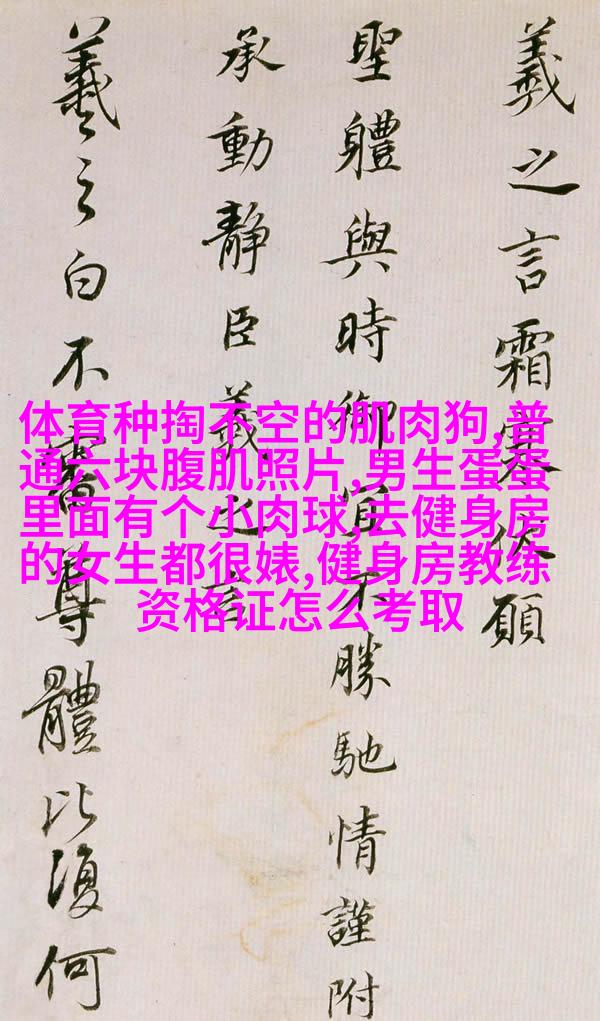 羲之言霜寒伏願
聖體與時御宜不勝馳情謹附
承動靜臣羲之言
羲之白不審尊體比復何
体育种掏不空的肌肉狗,普
通六块腹肌照片,男生蛋蛋
里面有个小肉球,去健身房
的女生都很婊,健身房教练
资格证怎么考取